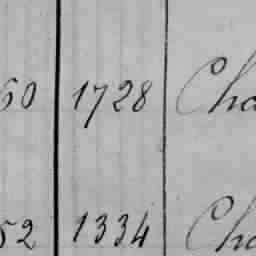 60 1728 Cha
52 1334 Cha